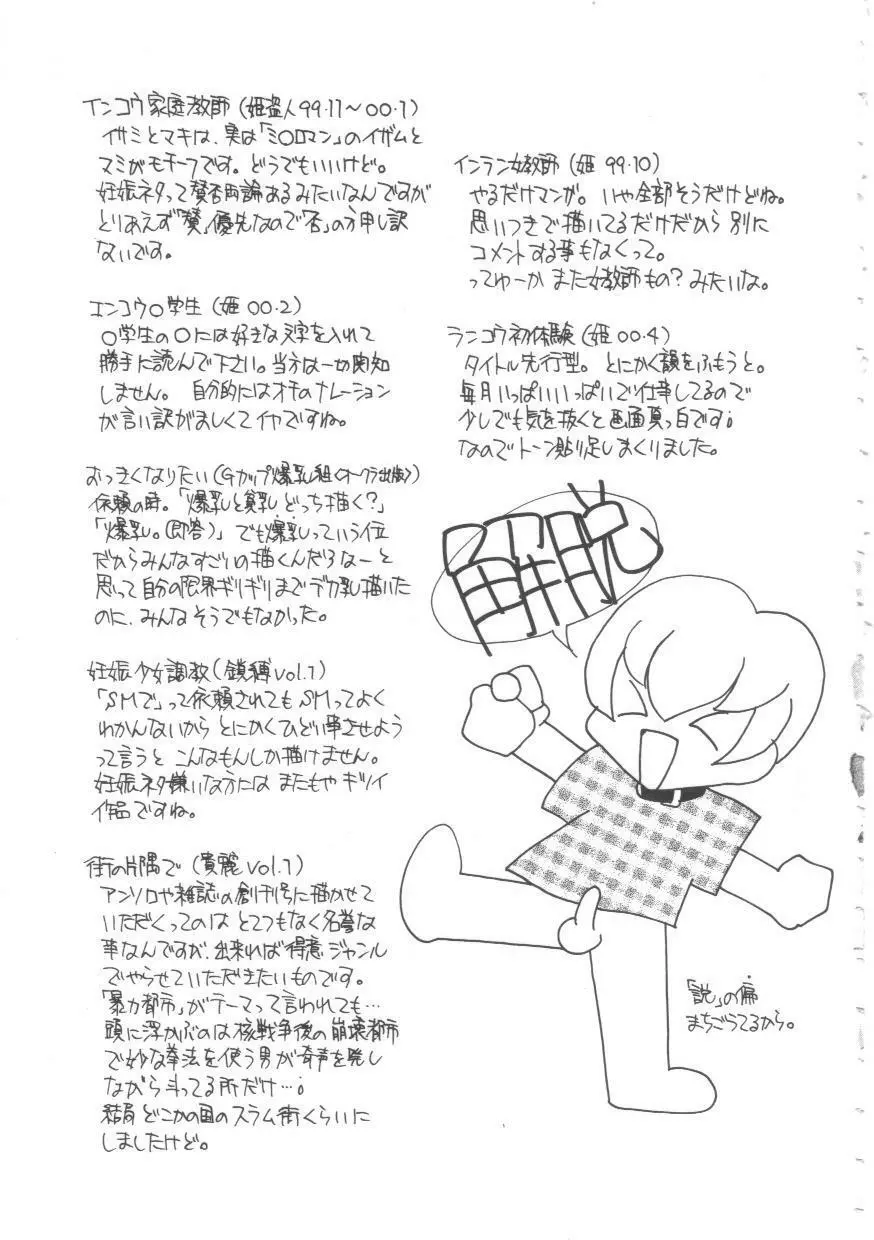 インコウ家庭教師(姫盗人99.11~00.1)
イサミとマキは、実は「ミ○ロマン」のイザムと
マミがモチーフです。どうでもいいけど。
妊娠ネタって賛否両論あるみたいなんですが
とりあえず「賛」優先なので「否」の方申し訳
ないです。
エンコウ○学生(姫00.2)
○学生の○には好きな文字を入れて
勝手に読んで下さい。当方は一切関知
しません。自分的にはオチのナレーション
が言い訳がましくてイヤですね。
おっきくなりたい(Gカップ爆乳組<オークラ出版>)
依頼の時。「爆乳と貧乳どっち描く?」
「爆乳。(即答)」でも爆乳っていう位
だからみんなすごいの描くんだろなーと
思って自分の限界ギリギリまでデカ乳描いた
のに、みんなそうでもなかった。
妊娠少女調教(鎖縛vol.1)
「SMで」って依頼されてもSMってよく
わかんないからとにかくひどい事させよう
って言うとこんなもんしか描けません。
妊娠ネタ嫌いな方にはまたもやキツイ
作品ですね。
街の片隅で(貴麗vol.1)
アンソロや雑誌の創刊号に描かせて
いただくってのはとてつもなく名誉な
事なんですが、出来れば得意ジャンル
でやらせていただきたいものです。
「暴力都市」がテーマって言われても…
頭に浮かぶのは核戦争後の崩壊都市
で妙な拳法を使う男が奇声を発し
ながら斗ってる所だけ…。
結局どこかの国のスラム街くらいに
しましたけど。
インラン女教師(姫99.10)
やるだけマンガ。いや全部そうだけどね。
思いつきで描いてるだけだから別に
コメントする事もなくって。
ってゆーかまた女教師もの?みたいな。
ランコウ初体験(姫00.4)
タイトル先行型。とにかく韻をふもうと。
毎月いっぱいいっぱいで仕事してるので
少しでも気を抜くと画面真っ白です。
なのでトーン貼り足しまくりました。
「説」の偏
まちごうてるから。